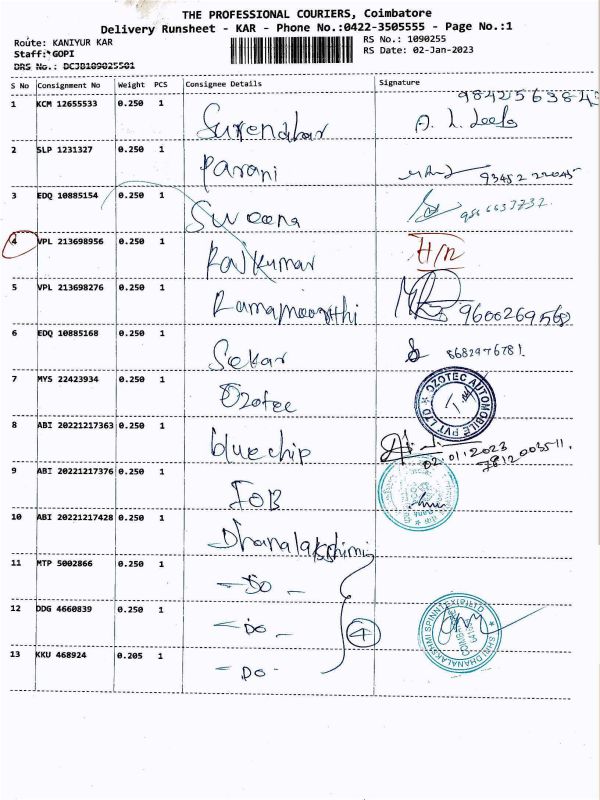 THE PROFESSIONAL COURIERS, Coimbatore
Delivery Runsheet - KAR - Phone No.:0422-3505555 - Page No.:1
Route: KANIYUR KAR
RS No.: 1090255
Staff: GOPI
RS Date: 02-Jan-2023
DRS No.: DCJB109025501
S No Consignment No Weight PCS Consignee Details Signature
1 KCM 12655533 0.250 1 Surendhar A. L. Leela
2 SLP 1231327 0.250 1 Parani
3 EDQ 10885154 0.250 1 Sweena
4 VPL 213698956 0.250 1 Rajkumar H/N
5 VPL 213698276 0.250 1 Ramamoorthi 9600269568
6 EDQ 10885168 0.250 1 Sekar 8682976781.
7 MYS 22423934 0.250 1 Ozotec OZOTEC AUTOMOBILE PVT LTD
8 ABI 20221217363 0.250 1 bluechip 02.01.2023
9 ABI 20221217376 0.250 1 IOB
10 ABI 20221217428 0.250 1 Dhanalakshimi
11 MTP 5002866 0.250 1 - DO -
12 DDG 4660839 0.250 1 - DO - 4 SHRI DHANALAKSHMI SPINNTEX (P) LTD
13 KKU 468924 0.205 1 - DO -